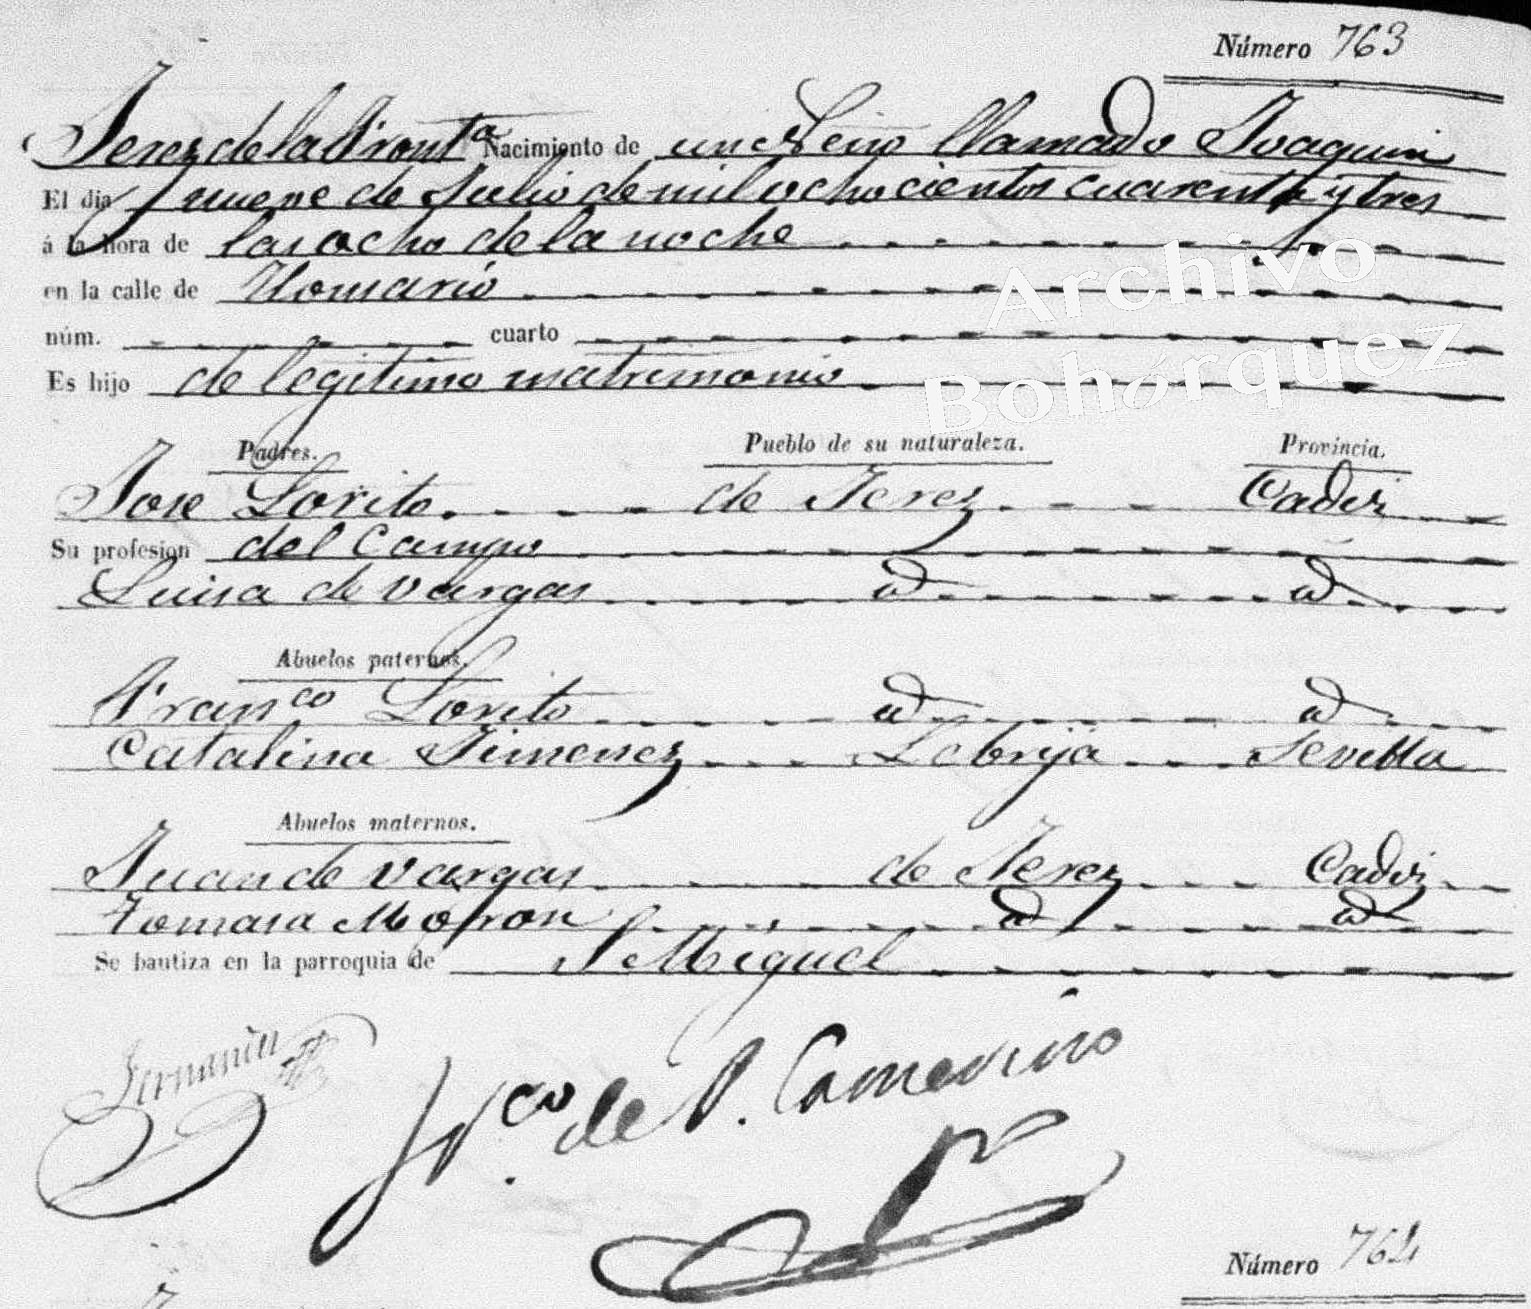 Número 763
Jerez de la Front.ª Nacimiento de un Niño llamado Joaquin
El dia nueve de Julio de mil ochocientos cuarenta y tres
á la hora de las ocho de la noche
en la calle de
núm. cuarto
Es hijo de legitimo matrimonio
Padres. Pueblo de su naturaleza. Provincia.
Jose Lorito de Jerez Cadiz
Su profesion del Campo
Luisa de Vargas id id
Abuelos paternos.
Fran.co Lorito id id
Catalina Jimenez Lebrija Sevilla
Abuelos maternos.
Juan de Vargas de Jerez Cadiz
Tomasa Moron id id
Se bautiza en la parroquia de S Miguel
Fco de P. Camerino
Número 764
Archivo
Bohórquez